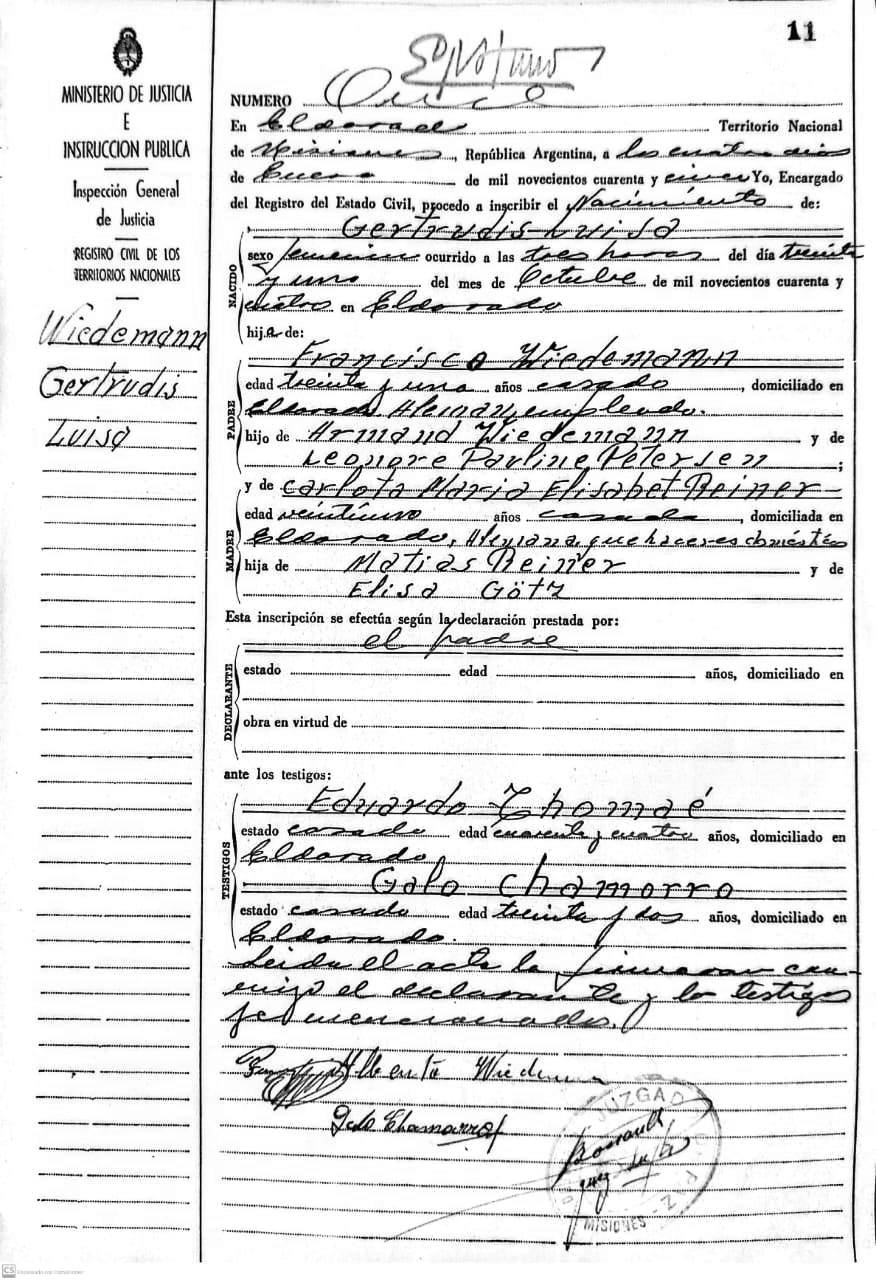 11
MINISTERIO DE JUSTICIA
E
INSTRUCCION PUBLICA
Inspección General
de Justicia
REGISTRO CIVIL DE LOS
TERRITORIOS NACIONALES
Wiedemann
Gertrudis
Luisa
NUMERO Once
En Eldorado Territorio Nacional
de Misiones, República Argentina, a los cuatro dias
de Enero de mil novecientos cuarenta y cinco Yo, Encargado
del Registro del Estado Civil, procedo a inscribir el Nacimiento de:
Gertrudis Luisa
NACIDO
sexo femenino ocurrido a las tres horas del día treinta
y uno del mes de Octubre de mil novecientos cuarenta y
cuatro en Eldorado
hija de:
Francisco Wiedemann
PADRE
edad treinta y uno años casado, domiciliado en
Eldorado, Aleman, empleado.
hijo de Armand Wiedemann y de
Leonore Pauline Petersen;
y de Carlota Maria Elisabet Reiner
MADRE
edad veintiuno años casada, domiciliada en
Eldorado, Alemana, quehaceres domésticos
hija de Matias Reiner y de
Elisa Götz
Esta inscripción se efectúa según la declaración prestada por:
el padre
DECLARANTE
estado edad años, domiciliado en
obra en virtud de
ante los testigos:
Eduardo Thomaé
TESTIGOS
estado casado edad cuarenta y cuatro años, domiciliado en
Eldorado,
Galo Chamorro
estado casado edad treinta y dos años, domiciliado en
Eldorado.
Leida el acta la firmaran con-
migo el declarante y los testigos
mencionados.
Wiedemann
Galo Chamorro
JUZGADO
PAZ
MISIONES
CS Escaneado con CamScanner